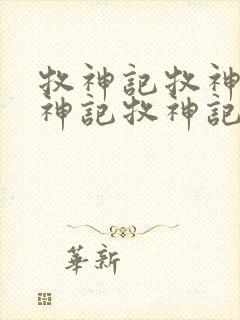 牧神記牧神
神記牧神記
華新